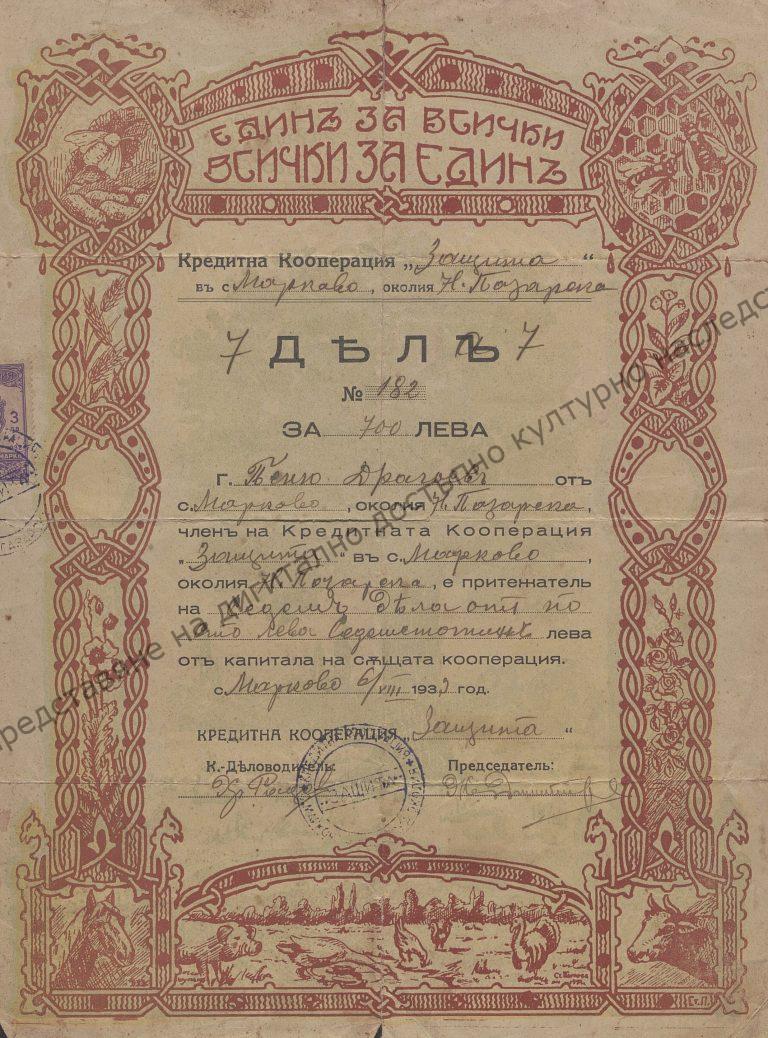 ЕДИНЪ ЗА ВСИЧКИ
ВСИЧКИ ЗА ЕДИНЪ
Кредитна Кооперация „Защита“
въ с Марково, околия Н. Пазарска
7 ДѢЛЪ 7
№ 182
ЗА 700 ЛЕВА
Г. Пеню Драгоевъ отъ
с. Марково, околия Н. Пазарска,
членъ на Кредитната Кооперация
„Защита“ въ с. Марково,
околия Н. Пазарска, е притежатель
на седемь дѣла отъ по
сто лева Седемстотинъ лева
отъ капитала на сѫщата кооперация.
с. Марково 6/VIII 1933 год.
КРЕДИТНА КООПЕРАЦИЯ „Защита“
К.-Дѣловодитель: Председатель:
ЗАЩИТА
представяне на дигитално достъпно културно наследст
3
Ст.П.